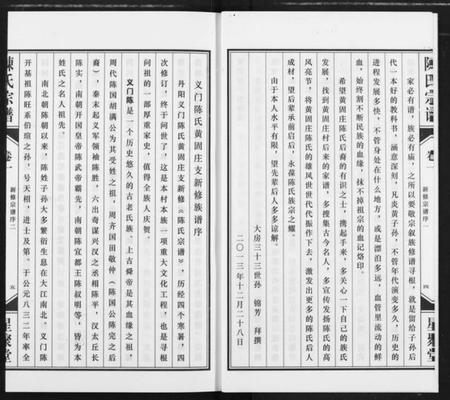 陳氏宗譜
卷一
新修宗譜序
四
星聚堂
家必有譜，族必有庙，之所以要敬宗叙族修譜寻根，就是留给子孙后
代一本好的教科书，涵意深刻，凡炎黄子孙，不管年代演变多久，历史的
进程发展多快，不管身处在什么地方，或是漂泊多远，血管里流动的鲜
血，始终割不断民族的血缘，抹不掉祖宗的血记烙印。
希望黄固庄陈氏后裔的有识之士，携起手来，多关心一下自己的族氏
发展，找到黄固庄村后来的家谱，多搜集古今名人，多宣传发扬陈氏的高
风亮节，将黄固庄陈氏的雄风世世代代振作下去，激发出更多的陈氏后人
成材，望后辈承前启后，永葆陈氏族宗之耀。
由于本人水平有限，望先辈后人多多谅解。
大房三十三世孙 锦芳 拜撰
二〇一三年十二月二十八日
义门陈氏黄固庄支新修族谱序
丹阳义门陈氏黄固庄支新修《陈氏宗谱》，历经四个寒暑，四
次修订，终于问世了，这是本村本族一项重大文化工程，也是寻根
问祖的一部厚重家史，值得全族人庆贺。
义门陈是一个历史悠久的古老氏族，上古舜帝是其血缘之祖，
周代陈国胡满公为其受姓之祖，周齐国田敬仲（陈国公陈完之后
裔），秦末起义军领袖陈胜，六出奇谋兴汉之丞相陈平，汉太丘长
陈实，南朝开国皇帝陈武帝霸先，南朝陈宜都王陈叔明等，皆为本
姓氏之名人祖先。
南北朝陈朝以来，陈姓子孙大多繁衍生息在大江南北。义门陈
开基祖陈旺系伯宣之孙，号天相，进士及第。于公元八三二年率全
陳氏宗譜
卷一
新修宗譜序二
五
星聚堂